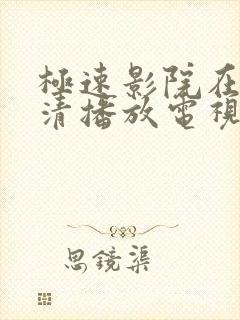 極速影院在
清播放電視
思鏡渠